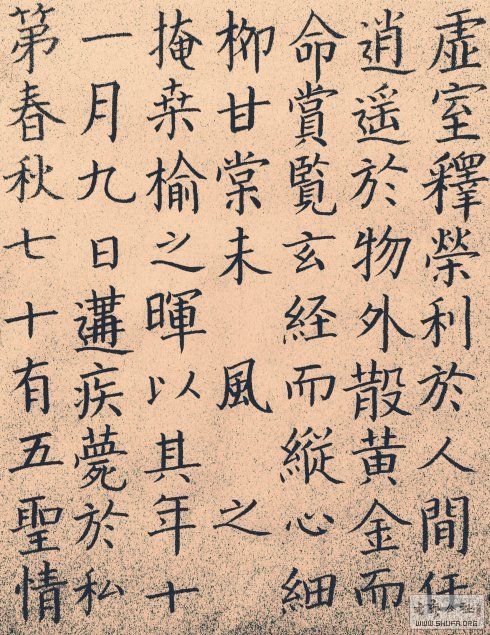 虚室釋榮利於人間任
逍遥於物外散黄金而
命賞覽玄経而縱心細
柳甘棠未 風 之
掩桒榆之暉以其年十
一月九日遘疾薨於私
第春秋七十有五聖情
WWW.SHUFA.ORG